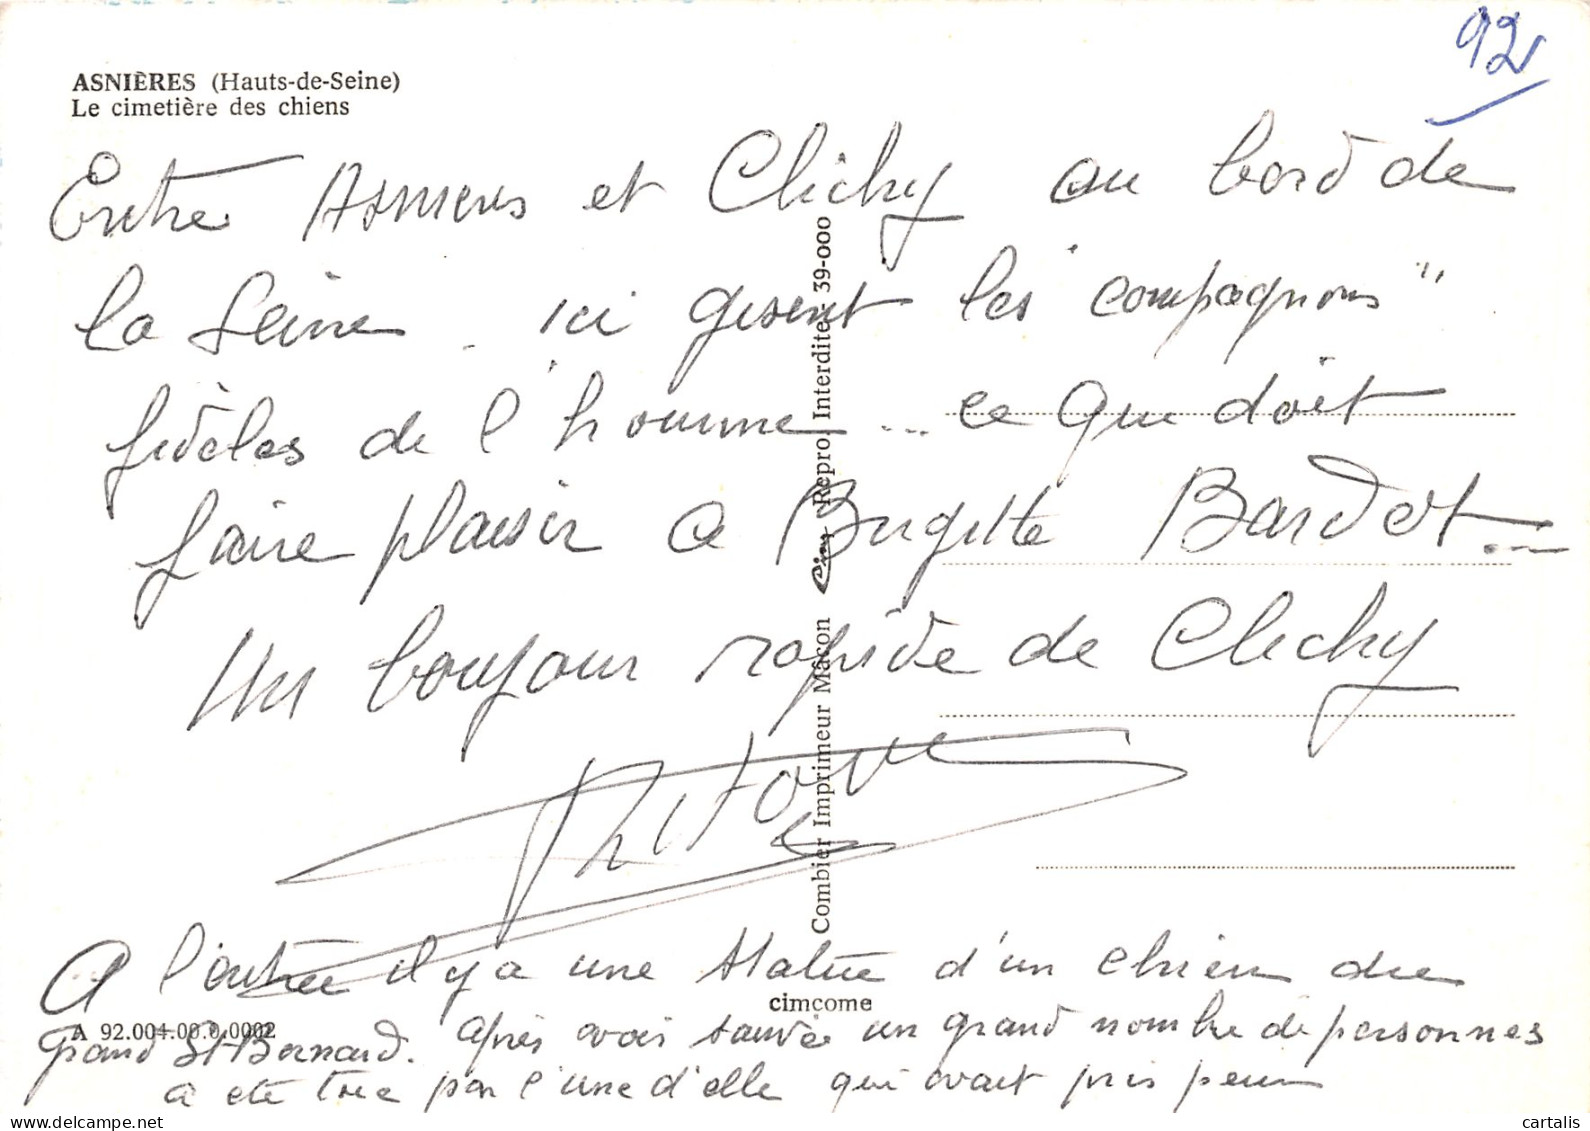 92
ASNIÈRES (Hauts-de-Seine)
Le cimetière des chiens
Entre Asnieres et Clichy au bord de
la Seine. ici gisent les "compagnons"
fidèles de l'homme... ce que doit
faire plaisir a Brigitte Bardot...
Un bonjour rapide de Clichy
A l'entrée il y a une statue d'un chien du
grand St-Bernard. après avoir sauvée un grand nombre de personnes
a été tree par l'une d'elle qui avait pris peur
Combier Imprimeur Mâcon Cim Repro. Interdite 39-000
cimcome
A 92.004.00.0.0002
delcampe.net
cartalis